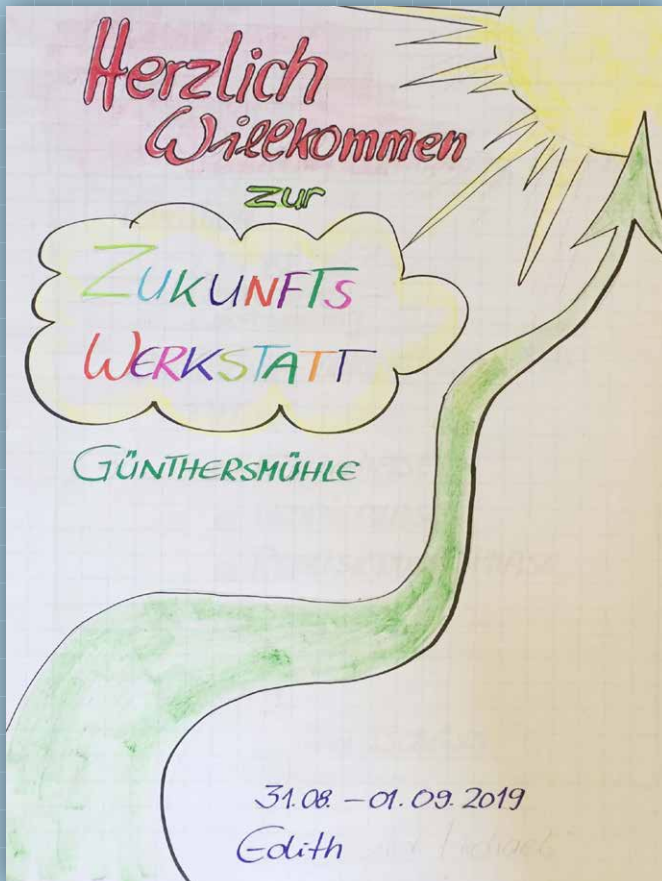 Herzlich
Willkommen
zur
ZUKUNFTS
WERKSTATT
GÜNTHERSMÜHLE
31.08. – 01.09.2019
Edith